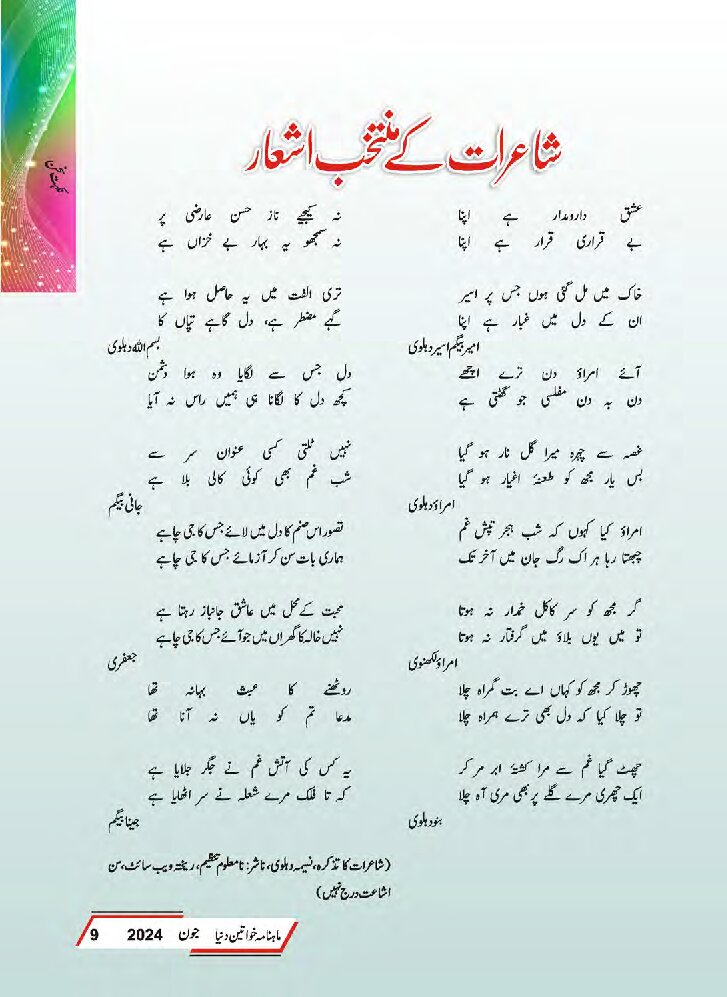 نکہت سخن
شاعرات کے منتخب اشعار
عشق دارومدار ہے اپنا
بے قراری قرار ہے اپنا
خاک میں مل گئی ہوں جس پر اسیر
ان کے دل میں غبار ہے اپنا
امیر بیگم اسیر دہلوی
آئے امراؤ دن ترے اچھے
دن بہ دن مفلسی جو گھٹتی ہے
غصہ سے چہرہ میرا گل نار ہو گیا
بس یار مجھ کو طعنۂ اغیار ہو گیا
امراؤ دہلوی
امراؤ کیا کہوں کہ شب ہجر نیش غم
چبھتا رہا ہر اک رگ جان میں آخر تک
گر مجھ کو سر کاکل خمدار نہ ہوتا
تو میں یوں بلاؤ میں گرفتار نہ ہوتا
امراؤ لکھنوی
چھوڑ کر مجھ کو کہاں اے بت گمراہ چلا
تو چلا کیا کہ دل بھی ترے ہمراہ چلا
چھٹ گیا غم سے مرا کشتۂ ابر مر کر
ایک چھری مرے گلے پر بھی مری آہ چلا
بنو دہلوی
نہ کیجیے ناز حسن عارضی پر
نہ سمجھو یہ بہار بے خزاں ہے
تری الفت میں یہ حاصل ہوا ہے
گہے مضطر ہے، دل گاہے تپاں کا
بسم اللہ دہلوی
دل جس سے لگایا وہ ہوا دشمن
کچھ دل کا لگانا ہی ہمیں راس نہ آیا
نہیں ٹلتی کسی عنوان سر سے
شب غم بھی کوئی کالی بلا ہے
جانی بیگم
تصور اس صنم کا دل میں لائے جس کا جی چاہے
ہماری بات سن کر آزمائے جس کا جی چاہے
محبت کے محل میں عاشق جانباز رہتا ہے
نہیں خالہ کا گھر اں میں جو آئے جس کا جی چاہے
جعفری
روٹھنے کا عبث بہانہ تھا
مدعا تم کو یاں نہ آنا تھا
یہ کس کی آتش غم نے جگر جلایا ہے
کہ تا فلک مرے شعلہ نے سر اٹھایا ہے
جینا بیگم
(شاعرات کا تذکرہ، نسیمہ دہلوی، ناشر: نامعلوم تنظیم، ریختہ ویب سائٹ، سن
اشاعت درج نہیں)
ماہنامہ خواتین دنیا جون 2024 9